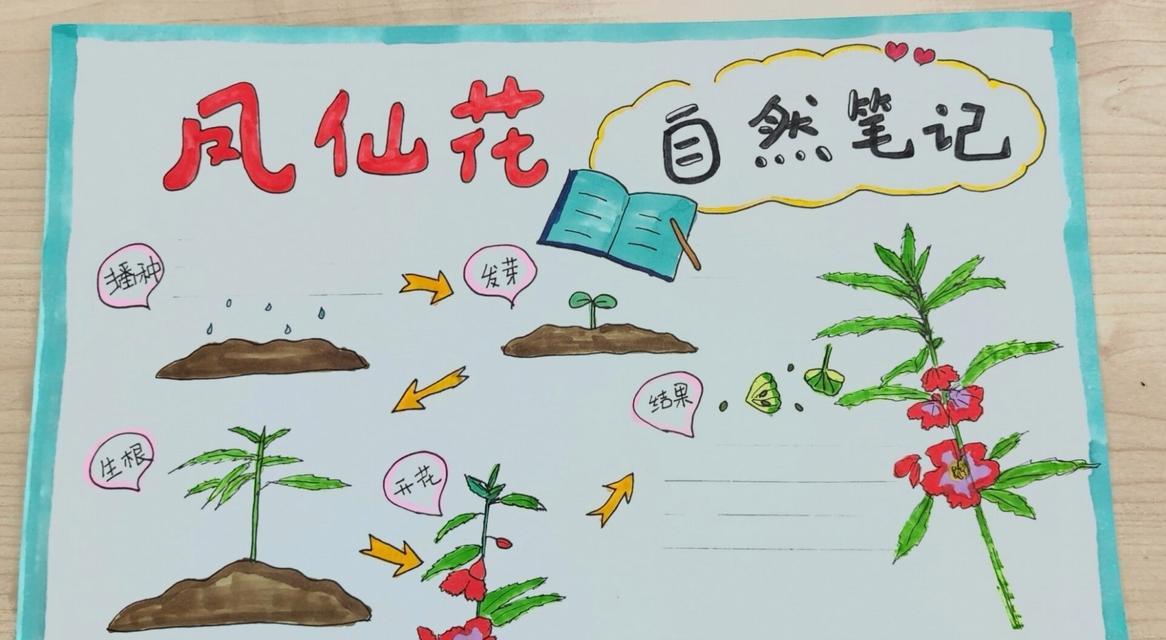 凤仙花
自然笔记
播种
发芽
生根
开花
结果